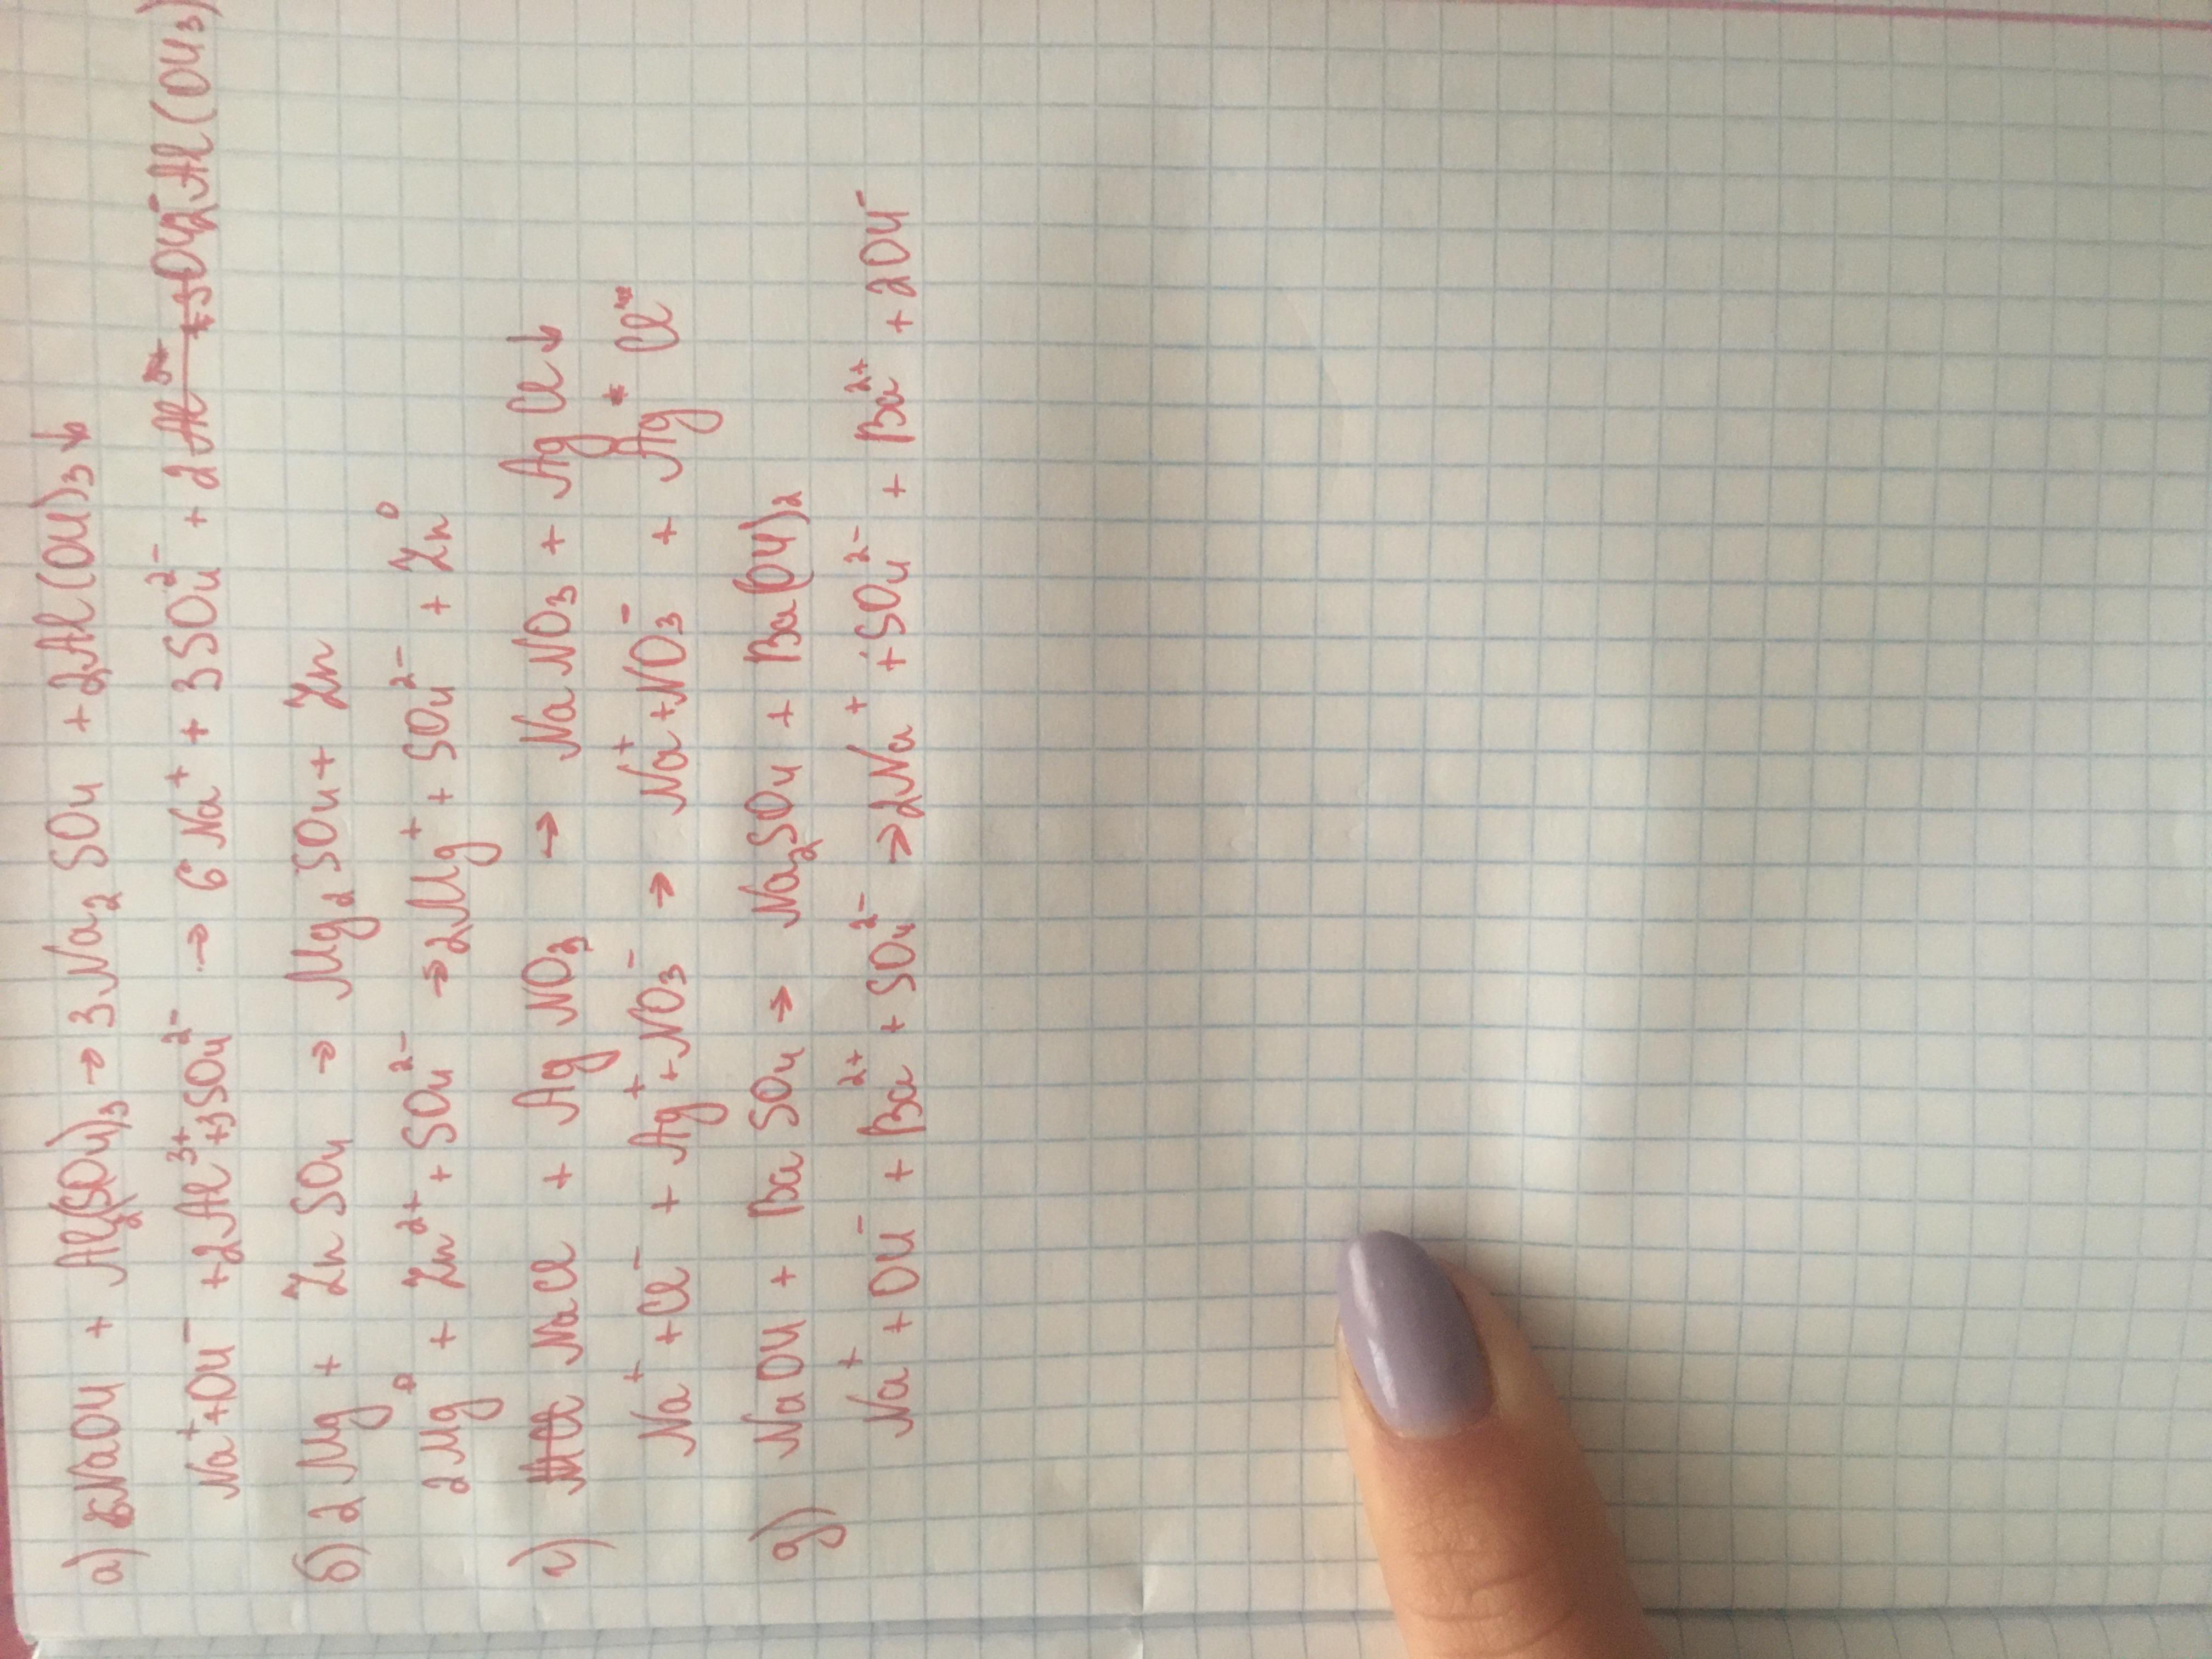 а) 6NaOH + Al₂(SO₄)₃ → 3Na₂SO₄ + 2Al(OH)₃↓
Na⁺+OH⁻ +2Al³⁺+3SO₄²⁻ → 6Na⁺ + 3SO₄²⁻ + 2Al(OH₃)
б) 2Mg + ZnSO₄ → Mg₂SO₄ + Zn
2Mg⁰ + Zn²⁺ + SO₄²⁻ → 2Mg⁺ + SO₄²⁻ + Zn⁰
г) NaCl + AgNO₃ → NaNO₃ + AgCl↓
Na⁺ + Cl⁻ + Ag⁺ + NO₃⁻ → Na⁺ + NO₃⁻ + AgCl
д) NaOH + BaSO₄ → Na₂SO₄ + Ba(OH)₂
Na⁺ + OH⁻ + Ba²⁺ + SO₄²⁻ → 2Na⁺ + SO₄²⁻ + Ba²⁺ + 2OH⁻